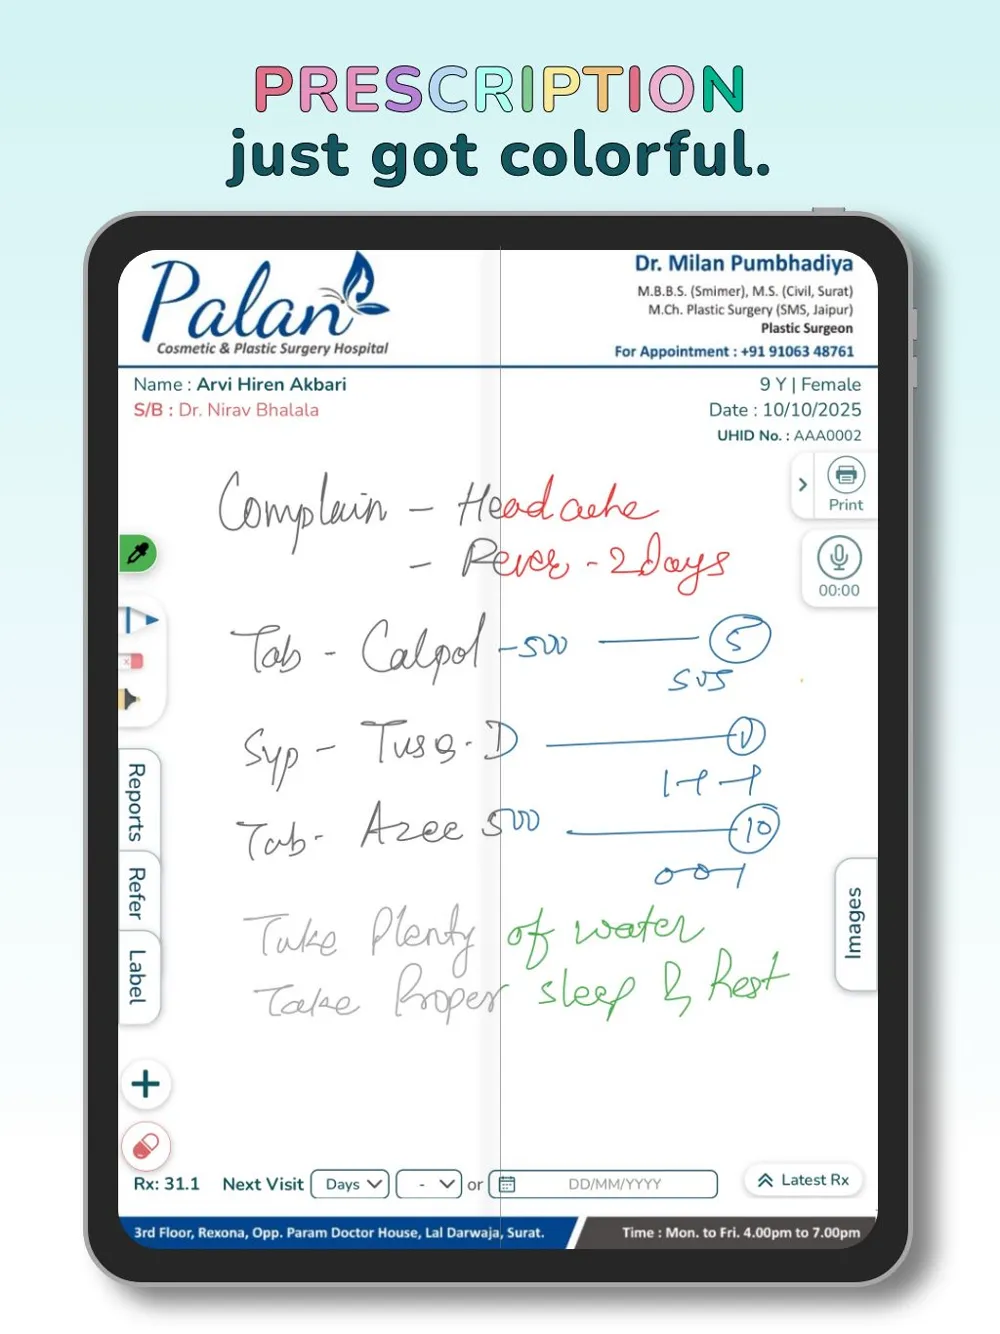 PRESCRIPTION
just got colorful.
Palan
Cosmetic & Plastic Surgery Hospital
Dr. Milan Pumbhadiya
M.B.B.S. (Smimer), M.S. (Civil, Surat)
M.Ch. Plastic Surgery (SMS, Jaipur)
Plastic Surgeon
For Appointment : +91 91063 48761
Name : Arvi Hiren Akbari
9 Y | Female
S/B : Dr. Nirav Bhalala
Date : 10/10/2025
UHID No. : AAA0002
Print
00:00
Complain - Headache
- Fever - 2 days
Tab - Calpol - 500 5
SOS
Syp - Tusq-D 1
1-1-1
Tab - Azee 500 10
0-0-1
Take Plenty of water
Take Proper sleep & Rest
Reports
Refer
Label
Images
Rx: 31.1 Next Visit Days - or DD/MM/YYYY Latest Rx
3rd Floor, Rexona, Opp. Param Doctor House, Lal Darwaja, Surat.
Time : Mon. to Fri. 4.00pm to 7.00pm